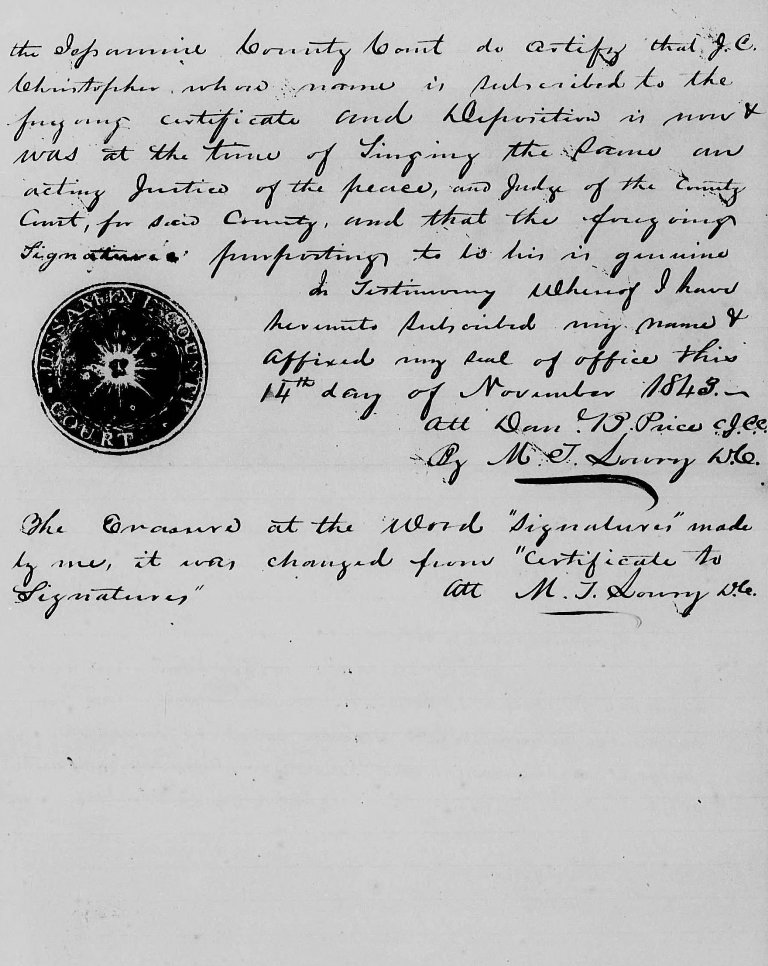 the Jessamine County Court do certify that J. C.
Christopher whose name is subscribed to the
foregoing certificate and Deposition is now &
was at the time of Singing the Same an
acting Justice of the peace, and Judge of the County
Court, for said County, and that the foregoing
Signatures purporting to be his is genuine
In Testimony Whereof I have
hereunto subscribed my name &
affixed my seal of office this
14th day of November 1843.
JESSAMINE COUNTY
COURT
Att Danl. B. Price C.J.C.C.
By M. T. Lowry D.C.
The Erasure at the Word "Signatures" made
by me, it was changed from "Certificate to
Signatures"
Att M. T. Lowry D.C.